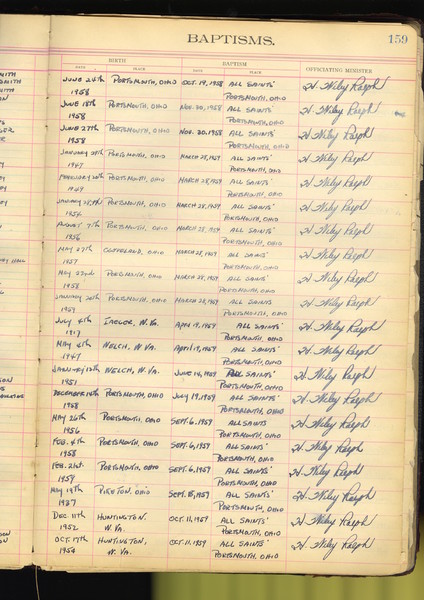 BAPTISMS. 159
BIRTH BAPTISM
DATE PLACE DATE PLACE OFFICIATING MINISTER
JUNE 24th PORTSMOUTH, OHIO OCT. 19, 1958 ALL SAINTS' H. Wiley Ralph
1958 PORTSMOUTH, OHIO
JUNE 18th PORTSMOUTH, OHIO NOV. 30, 1958 ALL SAINTS' H. Wiley Ralph
1958 PORTSMOUTH, OHIO
JUNE 27th PORTSMOUTH, OHIO NOV. 30, 1958 ALL SAINTS' H. Wiley Ralph
1958 PORTSMOUTH, OHIO
JANUARY PORTSMOUTH, OHIO MARCH 28, 1959 ALL SAINTS' H. Wiley Ralph
1947 PORTSMOUTH, OHIO
FEBRUARY PORTSMOUTH, OHIO MARCH 28, 1959 ALL SAINTS' H. Wiley Ralph
1949 PORTSMOUTH, OHIO
JANUARY PORTSMOUTH, OHIO MARCH 28, 1959 ALL SAINTS' H. Wiley Ralph
PORTSMOUTH, OHIO
AUGUST PORTSMOUTH, OHIO MARCH 28, 1959 ALL SAINTS' H. Wiley Ralph
1956 PORTSMOUTH, OHIO
MAY 27th CLEVELAND, OHIO MARCH 28, 1959 ALL SAINTS' H. Wiley Ralph
1957 PORTSMOUTH, OHIO
MAY 22nd PORTSMOUTH, OHIO MARCH 28, 1959 ALL SAINTS' H. Wiley Ralph
1958 PORTSMOUTH, OHIO
JANUARY PORTSMOUTH, OHIO MARCH 28, 1959 ALL SAINTS H. Wiley Ralph
1959 PORTSMOUTH, OHIO
JULY 4th IAEGER, W. VA. APR. 19, 1959 ALL SAINTS' H. Wiley Ralph
1917 PORTSMOUTH, OHIO
MAY WELCH, W. VA APRIL 19, 1959 ALL SAINTS' H. Wiley Ralph
1947 PORTSMOUTH, OHIO
JANUARY WELCH, W. VA JUNE 14, 1959 ALL SAINTS' H. Wiley Ralph
1951 PORTSMOUTH, OHIO
DECEMBER PORTSMOUTH, OHIO JULY 19, 1959 ALL SAINTS' H. Wiley Ralph
1958 PORTSMOUTH, OHIO
MAY 26th PORTSMOUTH, OHIO SEPT. 6, 1959 ALL SAINTS H. Wiley Ralph
1956 PORTSMOUTH, OHIO
FEB. 4th PORTSMOUTH, OHIO SEPT. 6, 1959 ALL SAINTS' H. Wiley Ralph
1958 PORTSMOUTH, OHIO
FEB. 21st PORTSMOUTH, OHIO SEPT. 6, 1959 ALL SAINTS' H. Wiley Ralph
1959 PORTSMOUTH, OHIO
MAY 19th PIKETON, OHIO SEPT. 1959 ALL SAINTS' H. Wiley Ralph
1937 PORTSMOUTH, OHIO
DEC. 11th HUNTINGTON, OCT. 11, 1959 ALL SAINTS' H. Wiley Ralph
1952 W. VA. PORTSMOUTH, OHIO
OCT. 17th HUNTINGTON, OCT. 11, 1959 ALL SAINTS' H. Wiley Ralph
1954 W. VA. PORTSMOUTH, OHIO